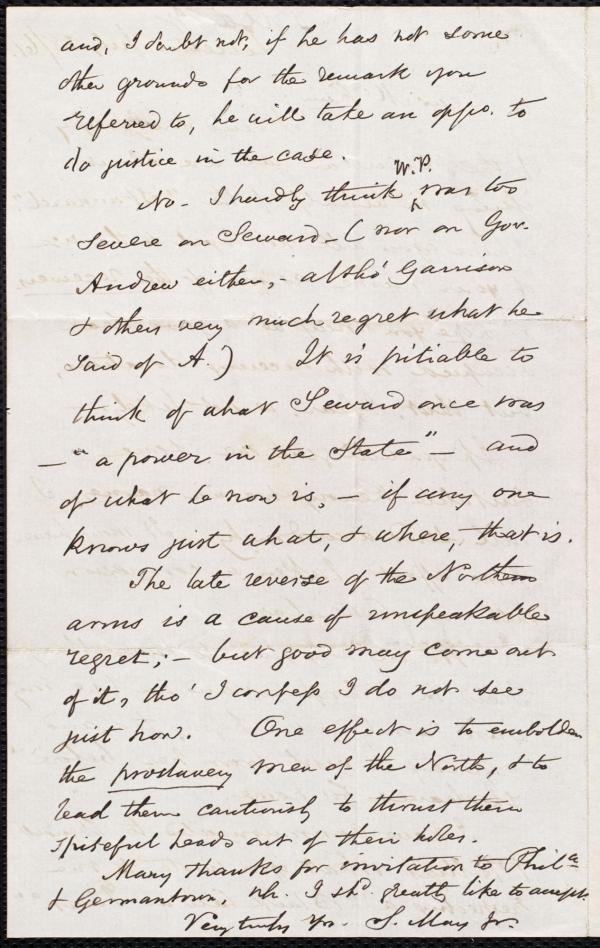 and, I doubt not, if he has not some
other grounds for the remark you
referred to, he will take an oppo. to
do justice in the case.
No - I hardly think W.P. was too
severe on Seward - (nor on Gov.
Andrew either, - altho' Garrison
& others very much regret what he
said of A.) It is pitiable to
think of what Seward once was
- "a power in the State" - and
of what he now is, - if any one
knows just what, & where, that is.
The late reverse of the Northern
arms is a cause of unspeakable
regret; - but good may come out
of it, tho' I confess I do not see
just how. One effect is to embolden
the proslavery men of the North, & to
lead them cautiously to thrust their
spiteful heads out of their holes.
Many thanks for invitation to Phila
& Germantown, wh. I shd. greatly like to accept.
Very truly yrs. S. May Jr.